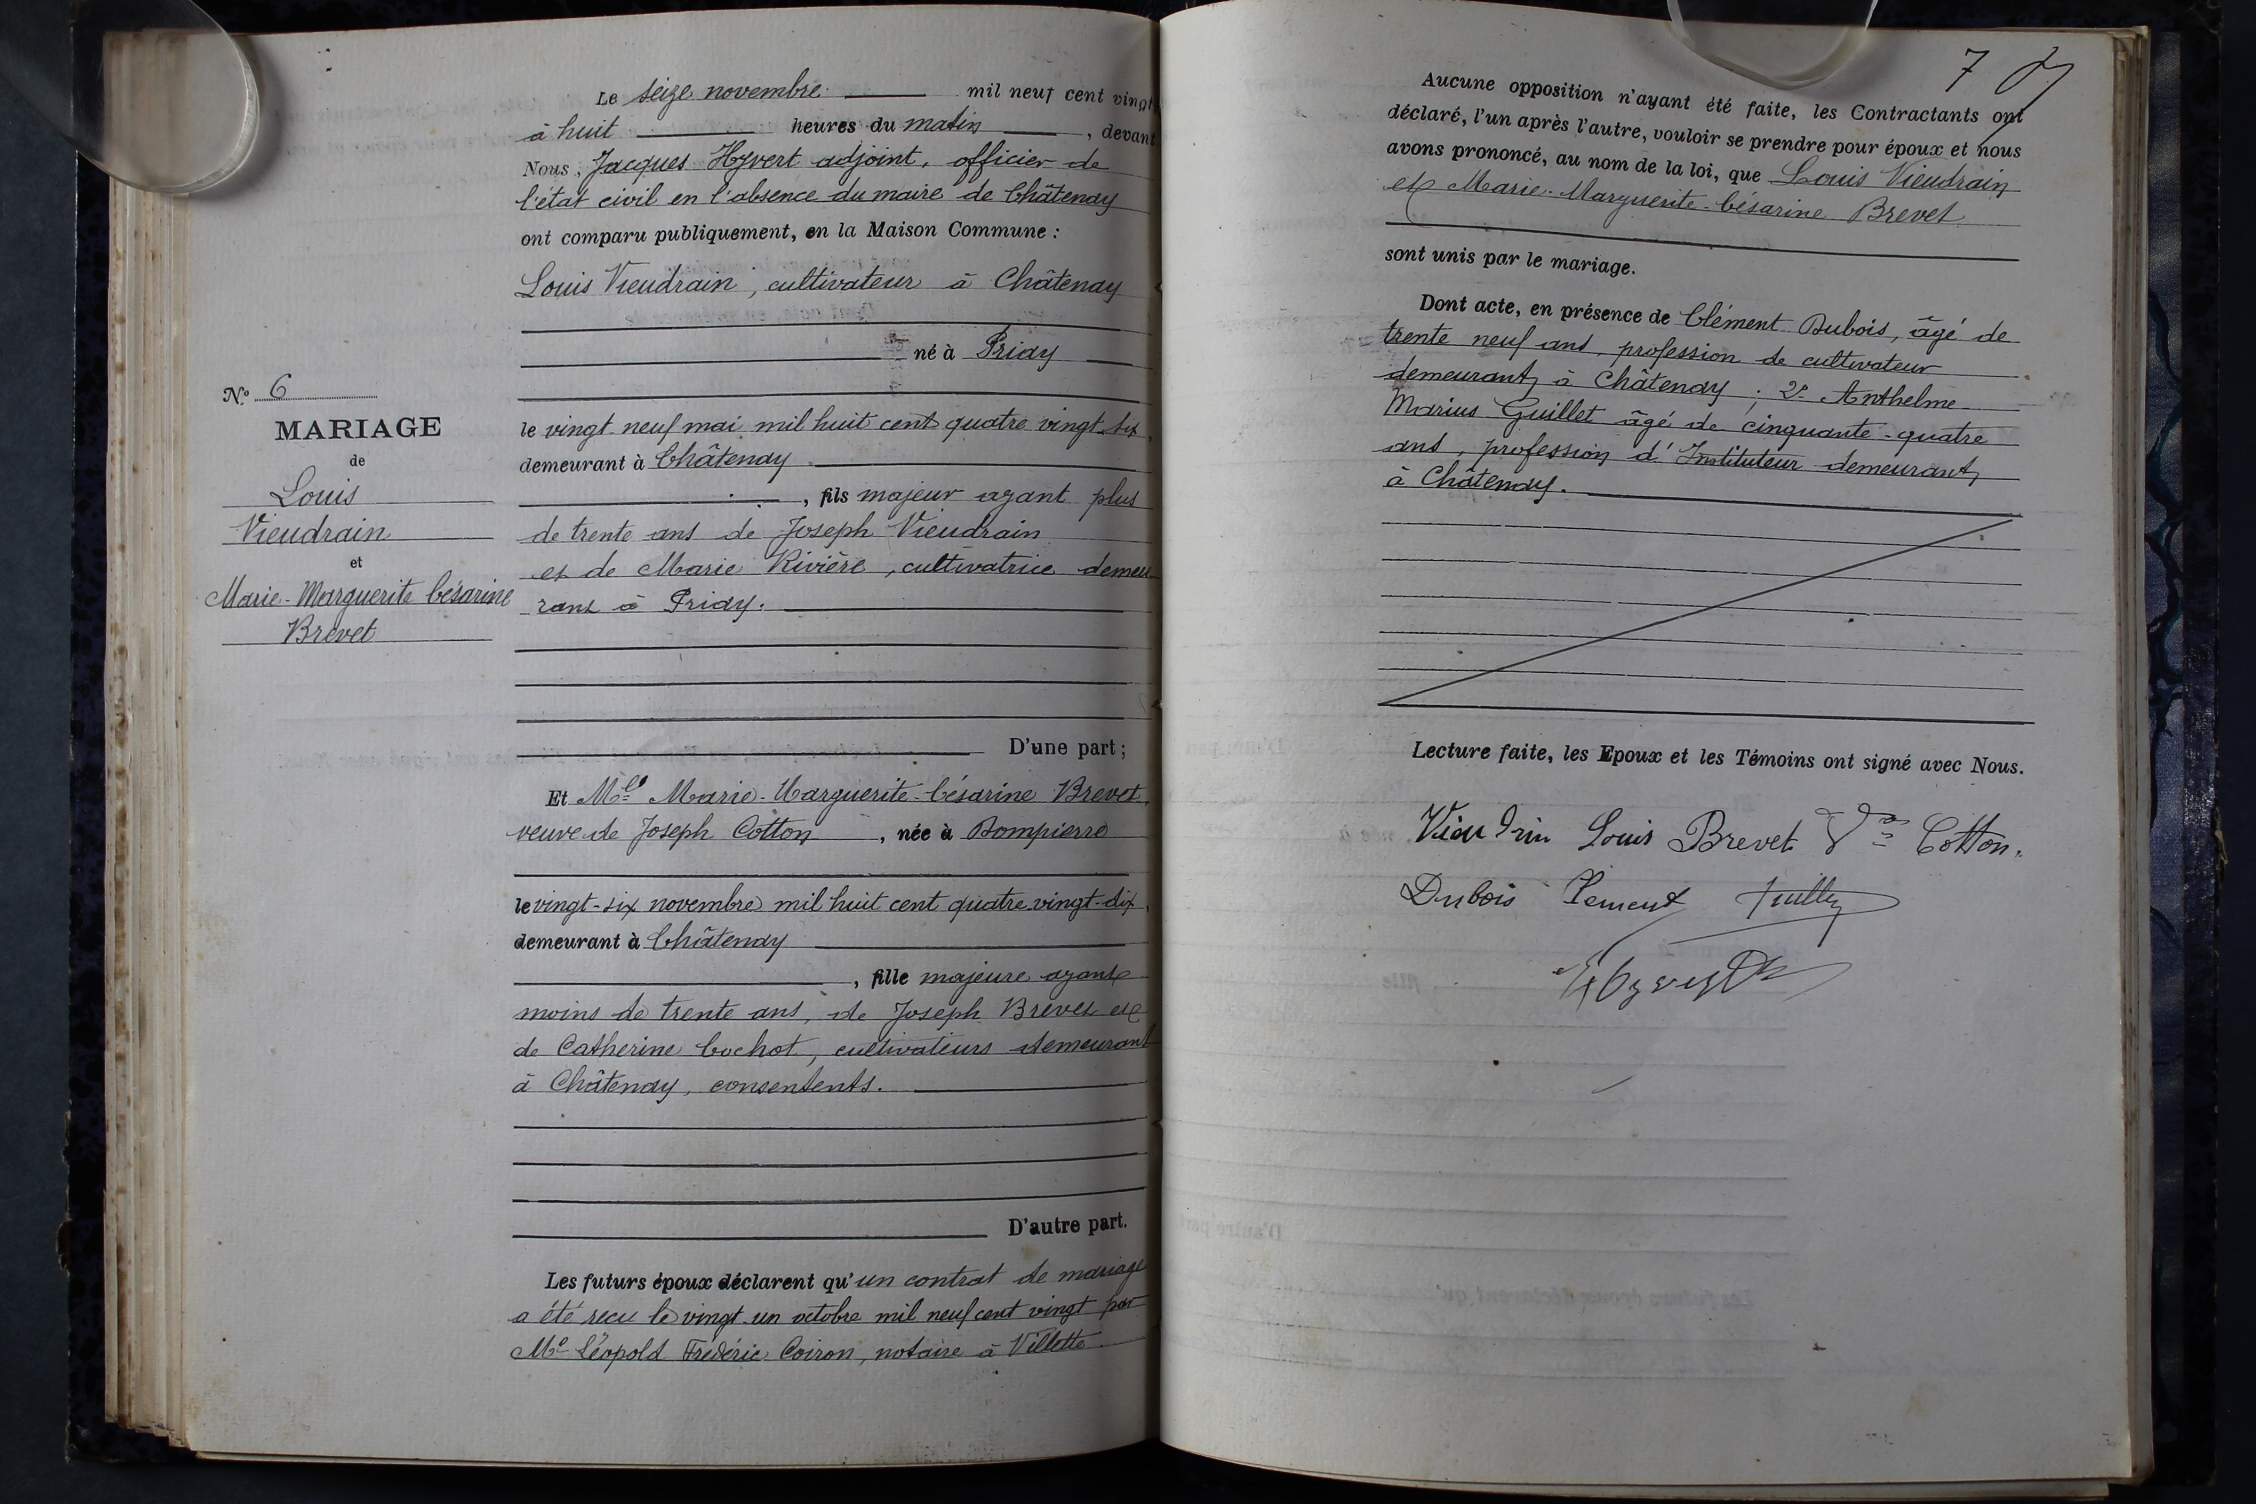 Le seize novembre mil neuf cent vingt
à huit heures du matin, devant
Nous, Jacques Hyvert adjoint, officier de
l'état civil en l'absence du maire de Châtenay
ont comparu publiquement, en la Maison Commune :
Louis Vieudrain, cultivateur à Châtenay
né à Priay
le vingt neuf mai mil huit cent quatre vingt six,
demeurant à Châtenay
, fils majeur ayant plus
de trente ans de Joseph Vieudrain
et de Marie Rivière, cultivatrice demeu
rant à Priay.
D'une part ;
Et Mle Marie-Marguerite-Césarine Brevet,
veuve de Joseph Cotton, née à Dompierre
le vingt-six novembre mil huit cent quatre vingt-dix,
demeurant à Châtenay
, fille majeure ayant
moins de trente ans, de Joseph Brevet et
de Catherine Cochot, cultivateurs demeurant
à Châtenay, consentents.
D'autre part.
Les futurs époux déclarent qu'un contrat de mariage
a été recu le vingt-un octobre mil neuf cent vingt par
Me Léopold Frédéric Coiron, notaire à Villette.
No 6
MARIAGE
de
Louis
Vieudrain
et
Marie-Marguerite Césarine
Brevet
7
Aucune opposition n'ayant été faite, les Contractants ont
déclaré, l'un après l'autre, vouloir se prendre pour époux et nous
avons prononcé, au nom de la loi, que Louis Vieudrain
et Marie-Marguerite-Césarine Brevet
sont unis par le mariage.
Dont acte, en présence de Clément Dubois, âgé de
trente neuf ans, profession de cultivateur
demeurant à Châtenay ; 2° Anthelme
Marius Guillet âgé de cinquante-quatre
ans, profession d'Instituteur demeurant
à Châtenay.
Lecture faite, les Epoux et les Témoins ont signé avec Nous.
Vieudrin Louis Brevet Vve Cotton.
Dubois Clement